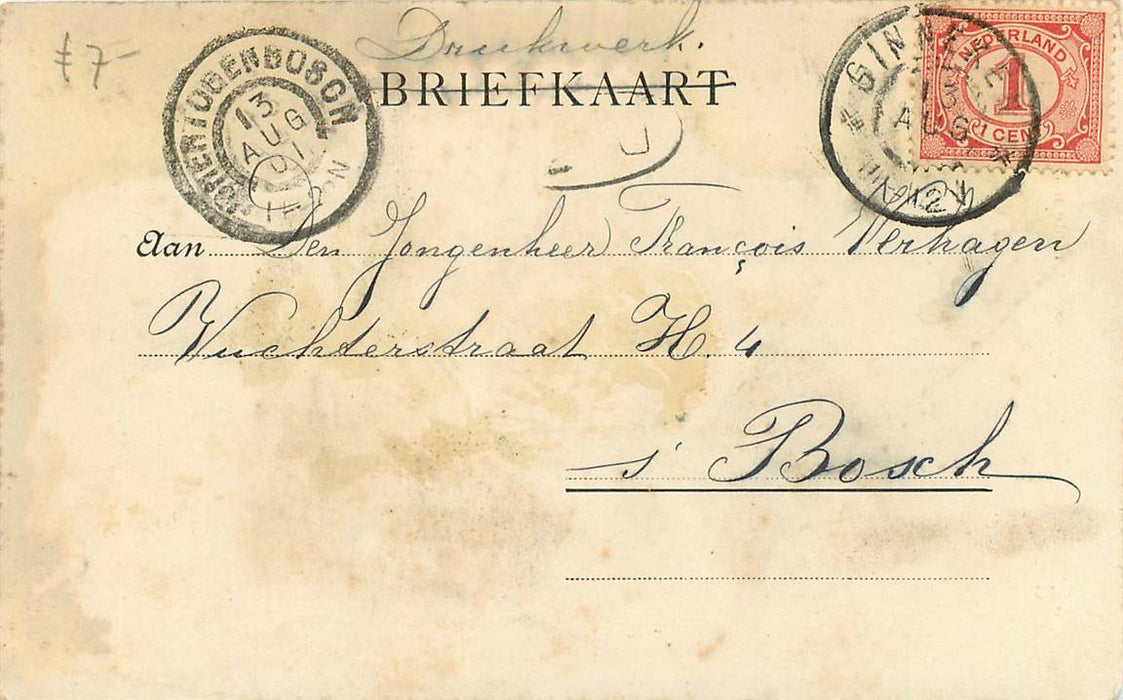 ƒ 7-
Drukwerk.
BRIEFKAART
'SHERTOGENBOSCH
13
AUG
01
12N
GINNEKEN
AUG
12
NEDERLAND
1
1 CENT
Aan Den Jongenheer François Verhagen
Vuchterstraat H. 4
s' Bosch